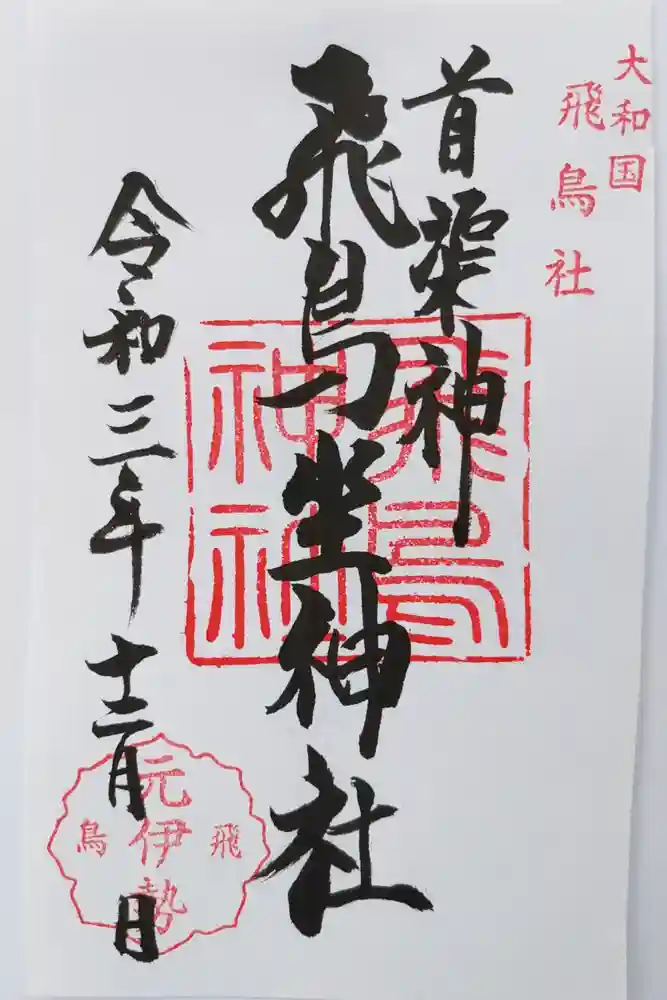 大和国
飛鳥社
首渠神
飛鳥坐神社
飛鳥
神
令和三年十二月 日
元伊勢
飛鳥